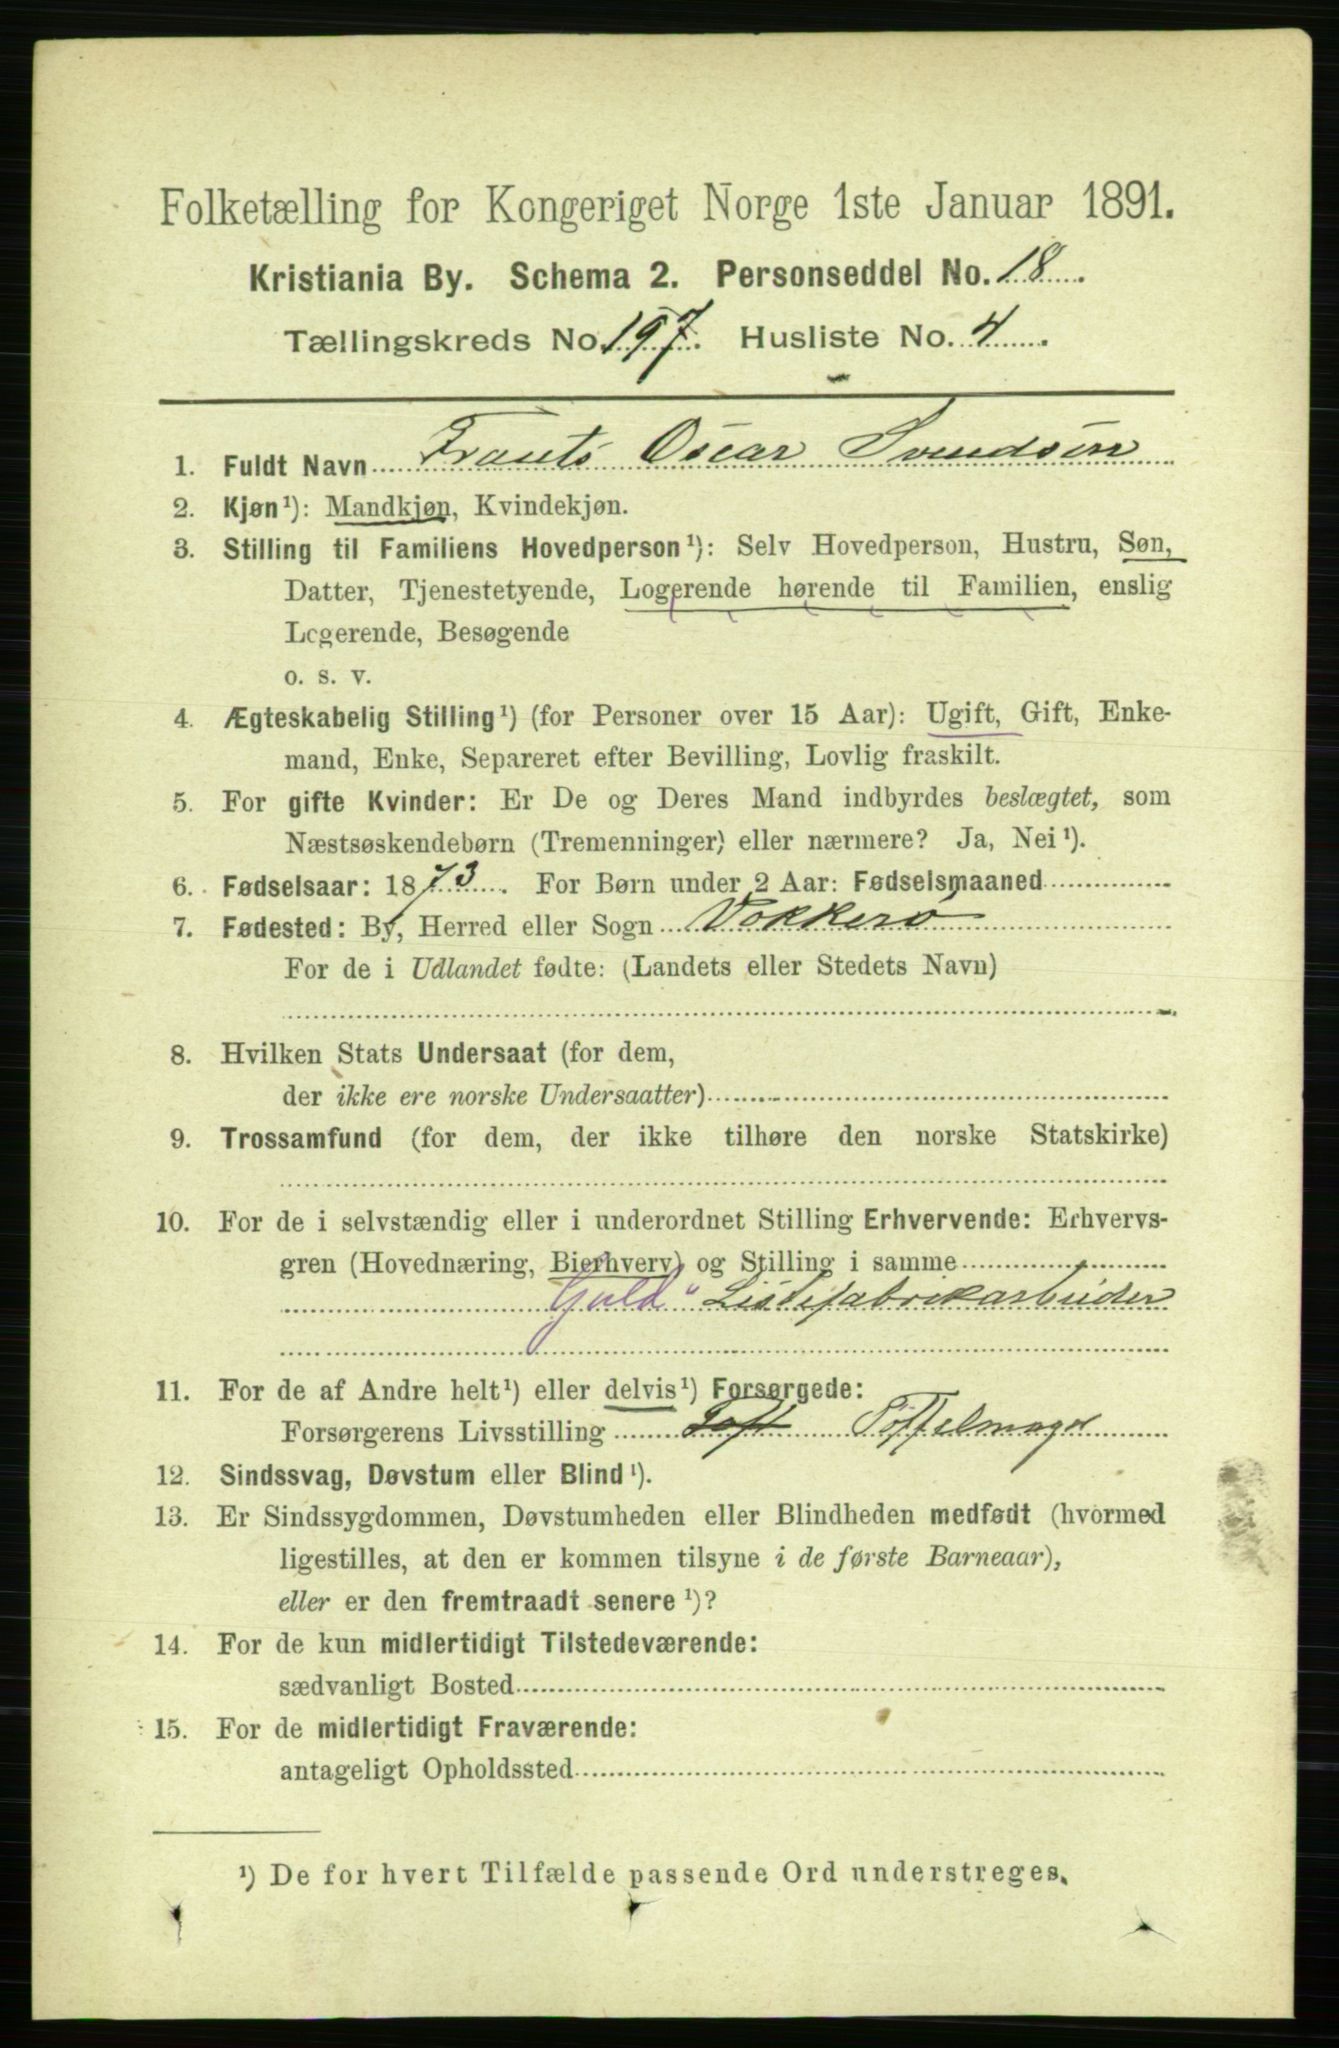 Folketælling for Kongeriget Norge 1ste Januar 1891.
Kristiania By. Schema 2. Personseddel No. 18.
Tællingskreds No. 197. Husliste No. 4.
1. Fuldt Navn Frants Oscar Svendsen
2. Kjøn¹): Mandkjøn, Kvindekjøn.
3. Stilling til Familiens Hovedperson¹): Selv Hovedperson, Hustru, Søn,
Datter, Tjenestetyende, Logerende hørende til Familien, enslig
Logerende, Besøgende
o. s. v.
4. Ægteskabelig Stilling¹) (for Personer over 15 Aar): Ugift, Gift, Enke-
mand, Enke, Separeret efter Bevilling, Lovlig fraskilt.
5. For gifte Kvinder: Er De og Deres Mand indbyrdes beslægtet, som
Næstsøskendebørn (Tremenninger) eller nærmere? Ja, Nei¹).
6. Fødselsaar: 1873. For Børn under 2 Aar: Fødselsmaaned
7. Fødested: By, Herred eller Sogn Vækkerø
For de i Udlandet fødte: (Landets eller Stedets Navn)
8. Hvilken Stats Undersaat (for dem,
der ikke ere norske Undersaatter)
9. Trossamfund (for dem, der ikke tilhøre den norske Statskirke)
10. For de i selvstændig eller i underordnet Stilling Erhvervende: Erhvervs-
gren (Hovednæring, Bierhverv) og Stilling i samme
Guld" Listefabrikarbeider
11. For de af Andre helt¹) eller delvis¹) Forsørgede:
Forsørgerens Livsstilling Toft Tøffelmager
12. Sindssvag, Døvstum eller Blind¹).
13. Er Sindssygdommen, Døvstumheden eller Blindheden medfødt (hvormed
ligestilles, at den er kommen tilsyne i de første Barneaar),
eller er den fremtraadt senere¹)?
14. For de kun midlertidigt Tilstedeværende:
sædvanligt Bosted
15. For de midlertidigt Fraværende:
antageligt Opholdssted
¹) De for hvert Tilfælde passende Ord understreges.